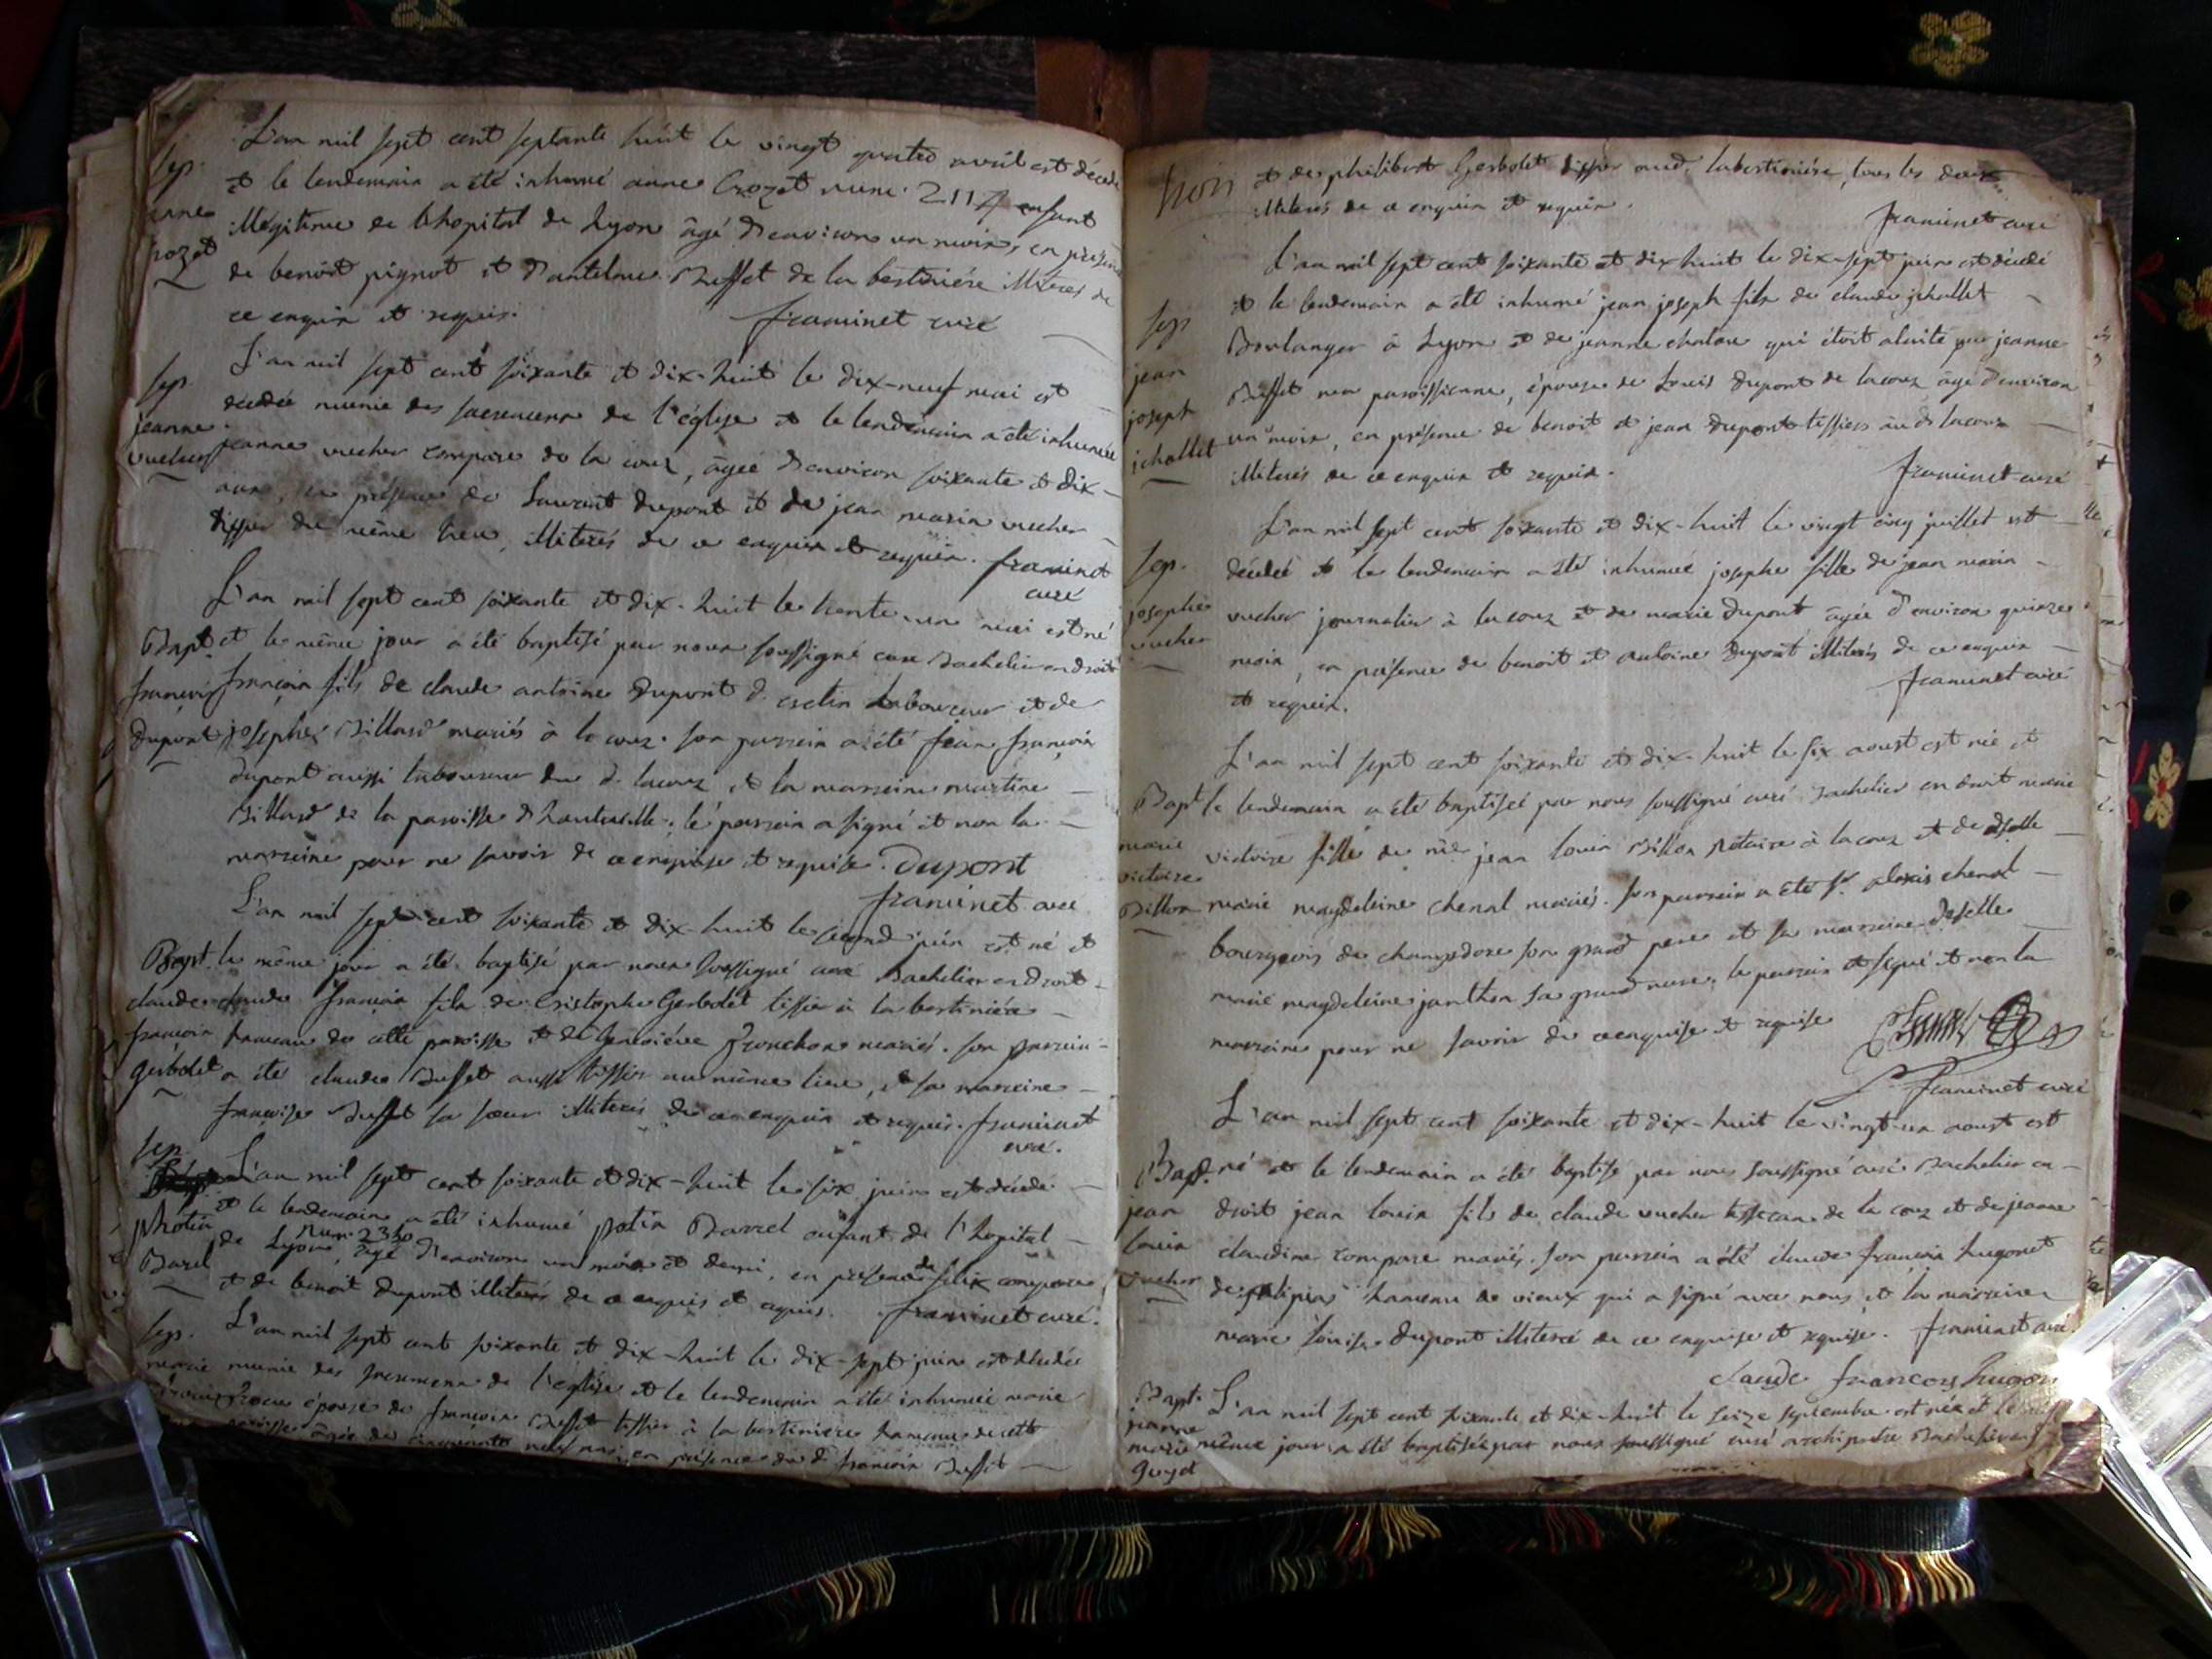 L'an mil sept cent septante huit le vingt quatre avril est décédé
Sep.
et le lendemain a été inhumé anne Crozet num. 2117 enfant
anne
illégitime de l'hopital de Lyon âgé d'environ un mois, en présence
Crozet
de benoit pignot et d'antelme Buffet de la bertinière illiterés de
ce enquis et requis. framinet curé
L'an mil sept cent soixante et dix-huit le dix-neuf mai est
Sep.
décédée munie des sacremens de l'église et le lendemain a été inhumée
jeanne
vucher
jeanne vucher compare de la couz, âgée d'environ soixante et dix
ans, en présence de Laurent dupont et de jean marin vucher
tissier du même lieu, illiterés de ce enquis et requis. framinet
curé
L'an mil sept cent soixante et dix-huit le trente un mai est né
Bapt. et le même jour a été baptisé par nous soussigné curé Bachelier en droit
françois françois fils de claude antoine dupont d. laboureur et de
dupont josephe Billard mariés à la couz. son parrein a été jean françois
dupont aussi laboureur du d. lacouz, et la marreine martine
Billard de la paroisse d'hauteville; le parrein a signé et non la
marreine pour ne savoir de ce enquise et requise. dupont
framinet curé
L'an mil sept cent soixante et dix-huit le second juin est né et
Bapt. le même jour a été baptisé par nous soussigné curé Bachelier en droit
claude claude françois fils de Cristophe Gerbolet tissier à la bertinière
françois hameau de cette paroisse et de Genoiéve mariés. son parrein
gerbolet a été claude Buffet aussi tissier au même lieu, et sa marreine
françoise Buffet sa soeur illiterés de ce enquis et requis. framinet
curé.
Sep.
L'an mil sept cent soixante et dix-huit le six juin est décédé
et le lendemain a été inhumé potin Barrel enfant de l'hopital
photin
num 2330
Barel de Lyon, âgé d'environ un mois et demi, en présence de felix compare
et de benoit dupont illiterés de ce enquis et requis. framinet curé.
Sep. L'an mil sept cent soixante et dix-huit le dix-sept juin est décédée
marie munie des sacremens de l'église et le lendemain a été inhumée marie
épouse de françois Buffet tissier à la bertinière hameau de cette
paroisse âgée de cinquante neuf ans, en présence du d. françois Buffet
trois et de philibert Gerbolet tissier aud. labertinière, tous les deux
illiterés de ce enquis et requis.
framinet curé
L'an mil sept cent soixante et dix huit le dix-sept juin est décédé
et le lendemain a été inhumé jean joseph fils de claude jchallet
Sep
Boulanger à Lyon et de jeanne chalon qui étoit alaité par jeanne
jean
Buffet ma paroissienne, épouse de Louis dupont de lacouz âgé d'environ
joseph
un mois, en présence de benoit et jean dupont tissiers au d. lacouz
jchallet
illiterés de ce enquis et requis.
framinet curé
L'an mil sept cent soixante et dix-huit le vingt cinq juillet est
Sep. décédée et le lendemain a été inhumée josephe fille de jean marin
josephe vucher journalier à la couz et de marie dupont, âgée d'environ quinze
vucher
mois, en présence de benoit et antoine dupont illiterés de ce enquis
et requis.
framinet curé
L'an mil sept cent soixante et dix-huit le six aoust est née et
Bapt. le lendemain a été baptisée par nous soussigné curé Bachelier en droit marie
marie
victoire victoire fille de me jean louis Billon Notaire à lacouz et de dselle
Billon marie magdeleine chenal mariés. son parrein a été Sr. alexis chenal
bourgeois de champdore son grand pere et sa marreine deselle
marie magdeleine janthon sa grand mere. le parrein a signé et non la
marreine pour ne savoir de ce enquise et requise
framinet curé
L'an mil sept cent soixante et dix-huit le vingt-un aoust est
Bapt. né et le lendemain a été baptisé par nous soussigné curé Bachelier en
jean droit jean louis fils de claude vucher tisseran de la couz et de jeanne
louis claudine compare mariés. son parrein a été claude françois hugonet
vucher de hameau de vieux qui a signé avec nous, et la marreine
marie louise dupont illiterée de ce enquise et requise. framinet curé.
claude françois hugon
Bapt.
jeanne L'an mil sept cent soixante et dix-huit le seize septembre est née et le
marie même jour a été baptisée par nous soussigné curé archiprêtre Bachelier en
guyd